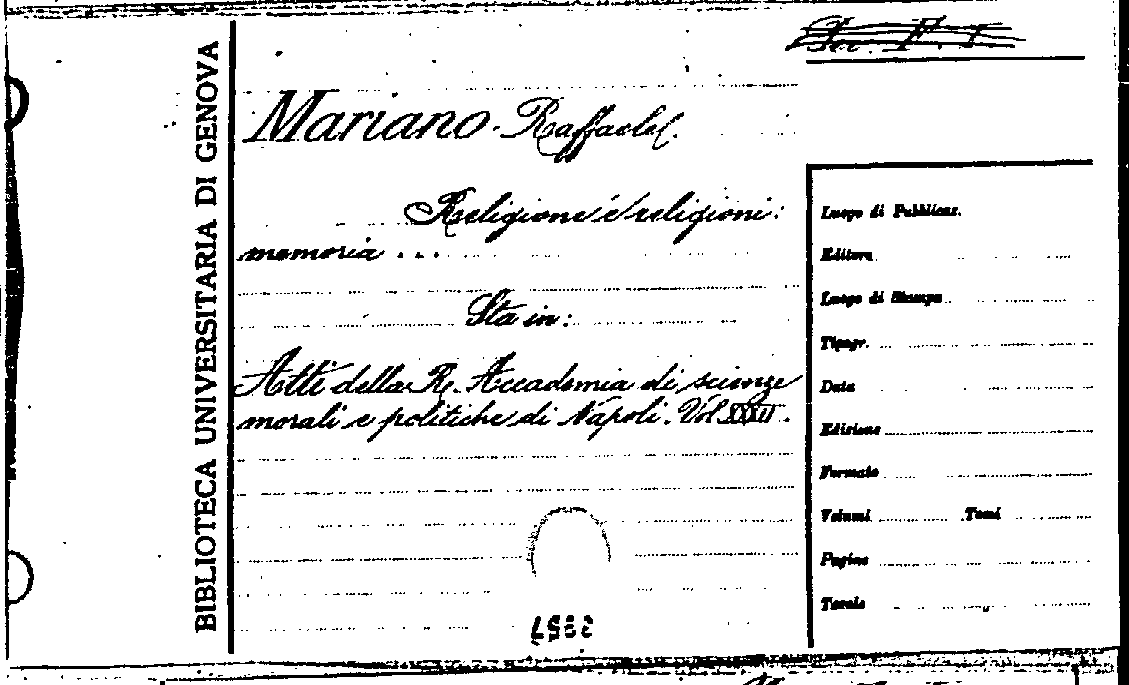 BIBLIOTECA UNIVERSITARIA DI GENOVA
Mariano Raffaele.
Religione e religioni:
memoria ...
Sta in:
Atti della R. Accademia di scienze
morali e politiche di Napoli. Vol.
Luogo di Pubblicaz.
Editore
Luogo di Stampa
Tipogr.
Data
Edizione
Formato
Volumi Tomi
Pagine
Tavole